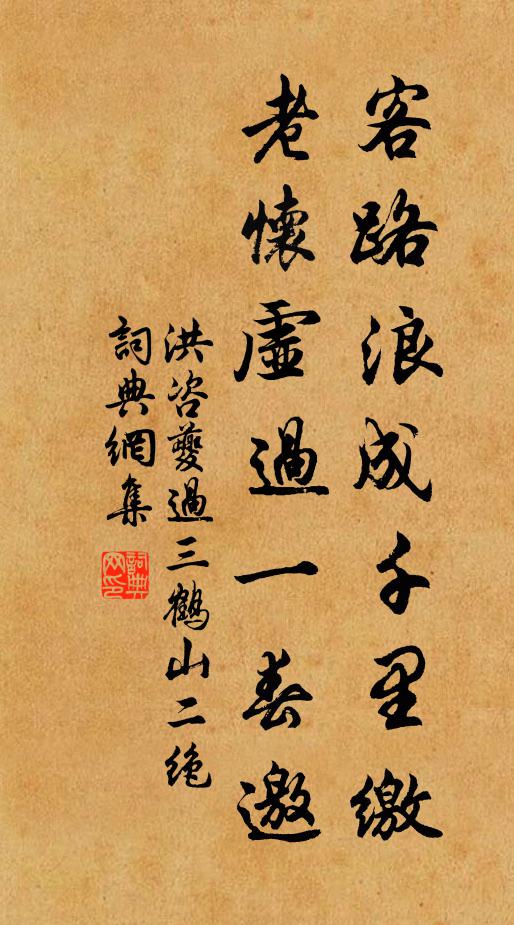 客路浪成千里繳
老懷虛過一春邀
洪咨夔過三鶴山二絕
詞典網集
詞典網印